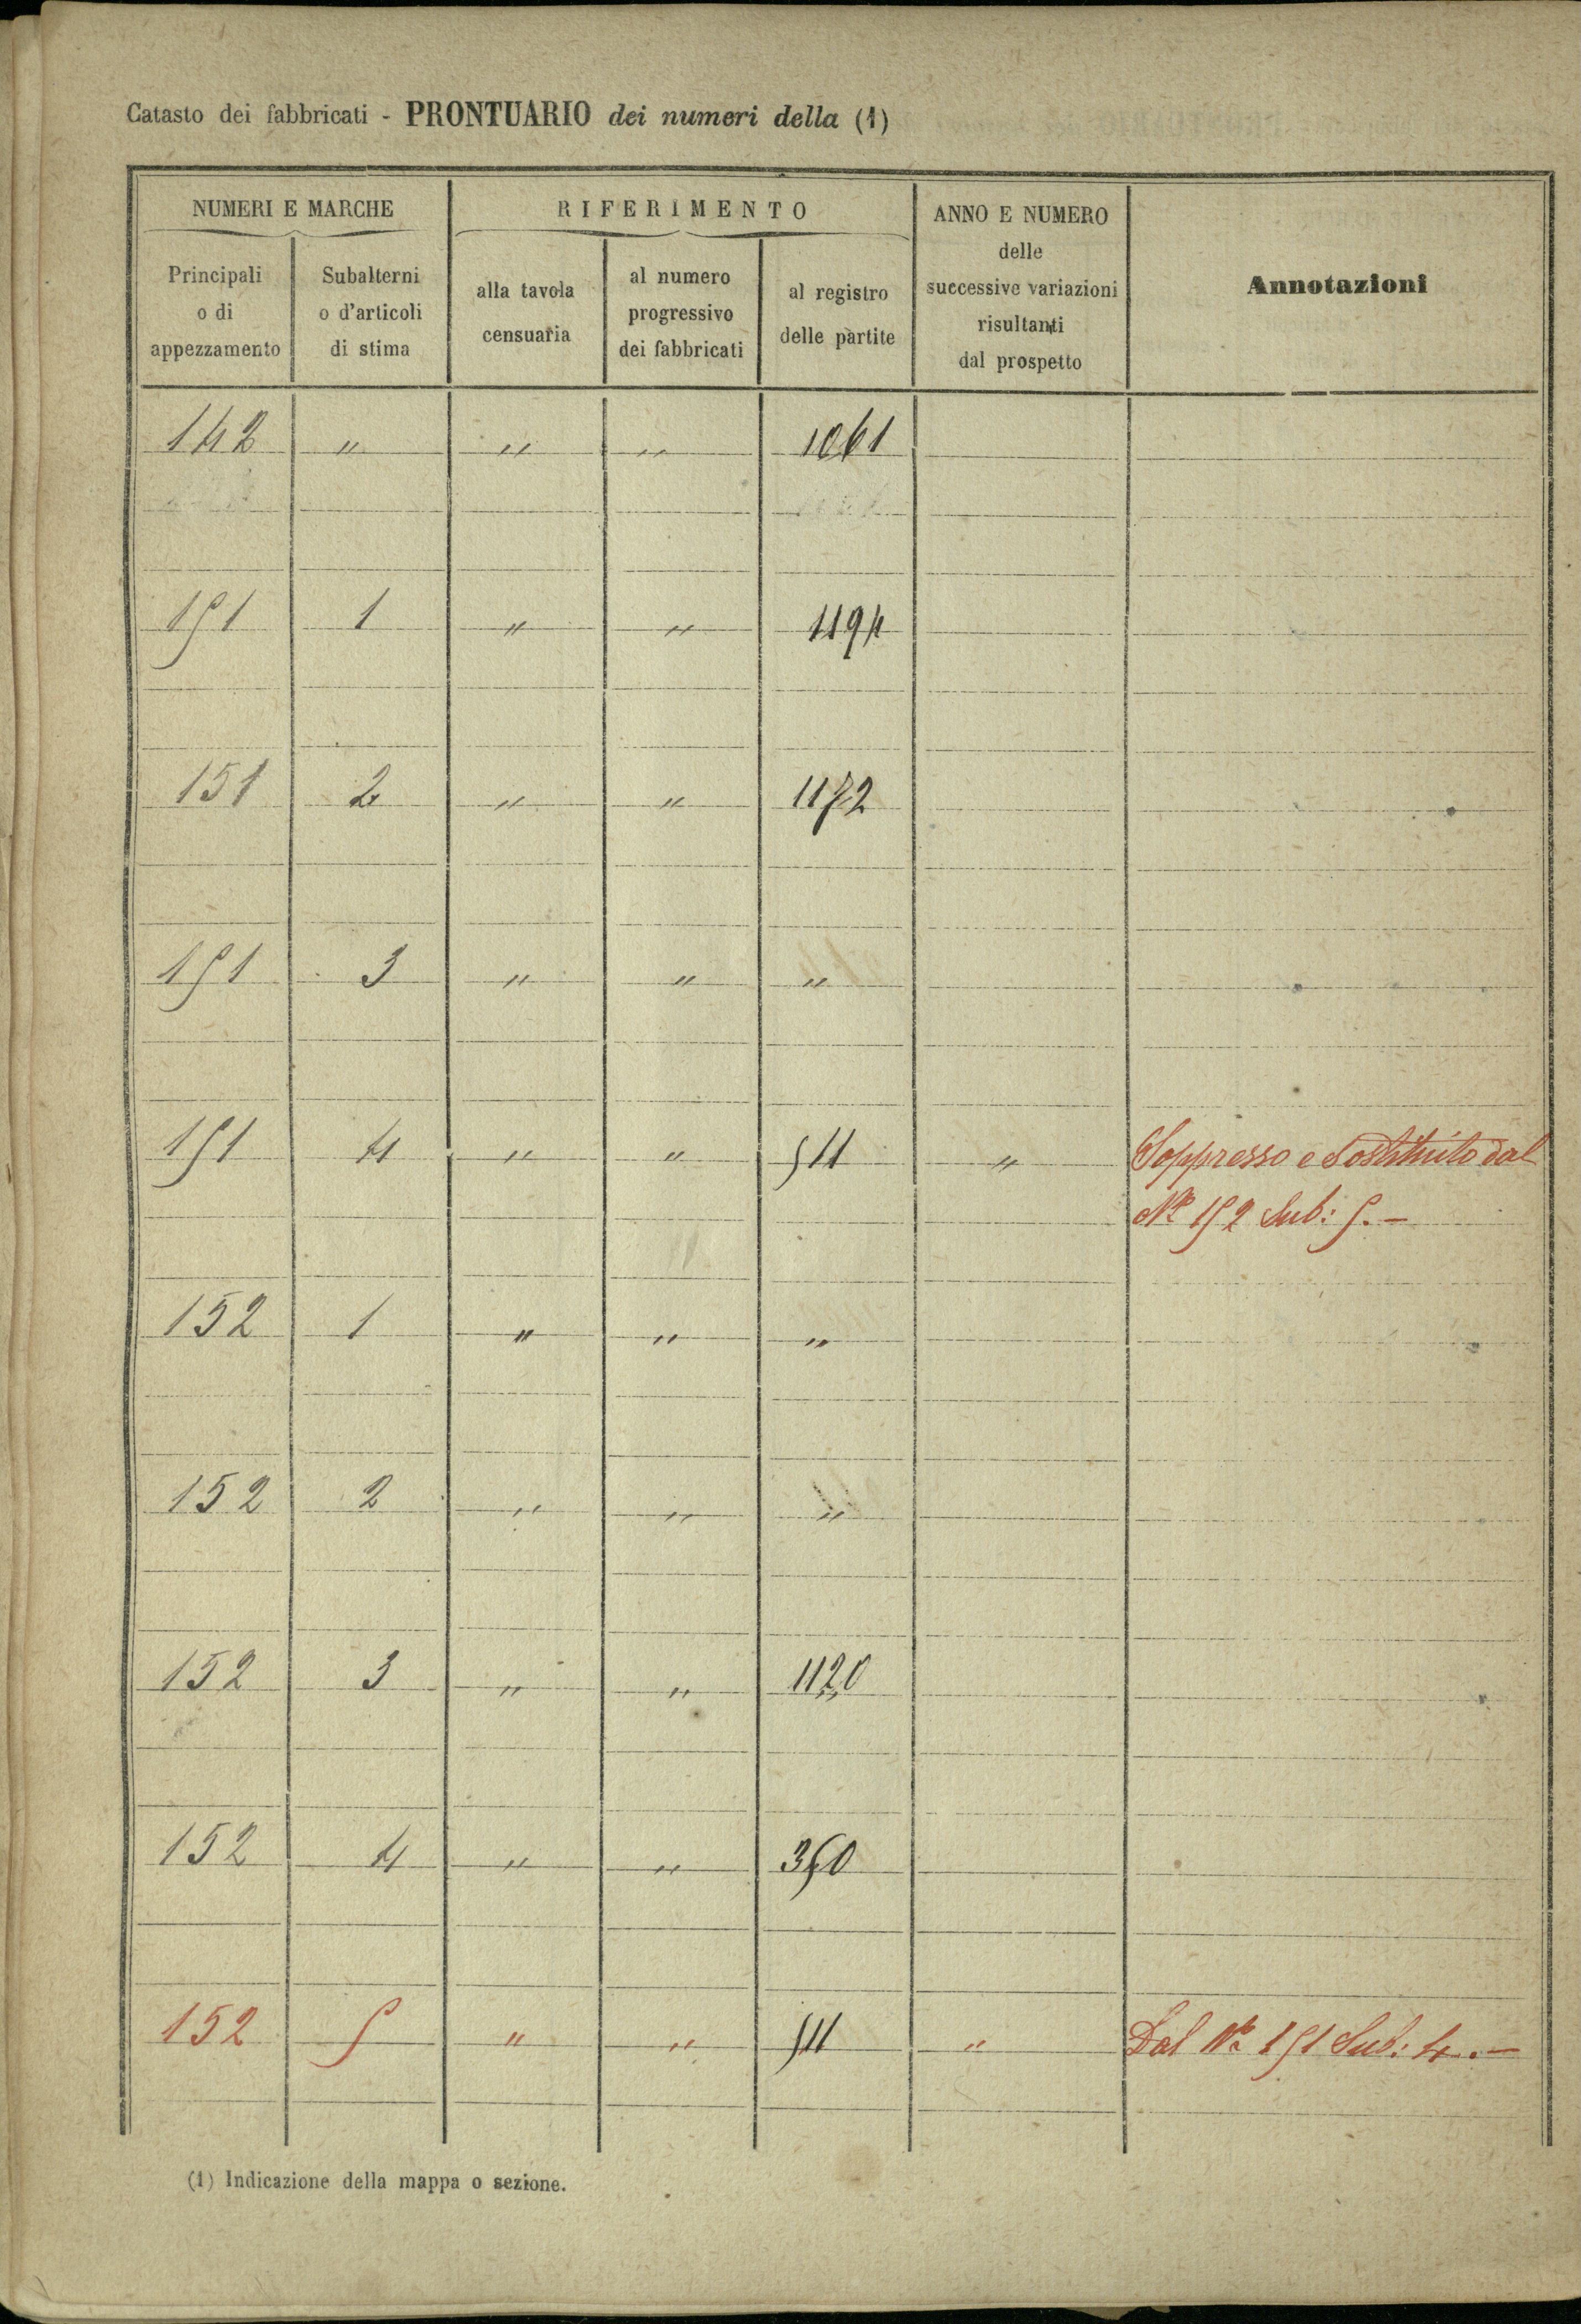 Catasto dei fabbricati - PRONTUARIO dei numeri della (1)
NUMERI E MARCHE
RIFERIMENTO
ANNO E NUMERO
delle
successive variazioni
risultanti
dal prospetto
Annotazioni
Principali
o di
appezzamento
Subalterni
o d'articoli
di stima
alla tavola
censuaria
al numero
progressivo
dei fabbricati
al registro
delle partite
142 " " " 1061
151 1 " " 1194
151 2 " " 1172
151 3 " " "
151 4 " " 511 " Soppresso e Sostituito dal
N° 152 Sub: 5. -
152 1 " " "
152 2 " " "
152 3 " " 1120
152 4 " " 350
152 5 " " 511 " Dal N° 151 Sub: 4. -
(1) Indicazione della mappa o sezione.